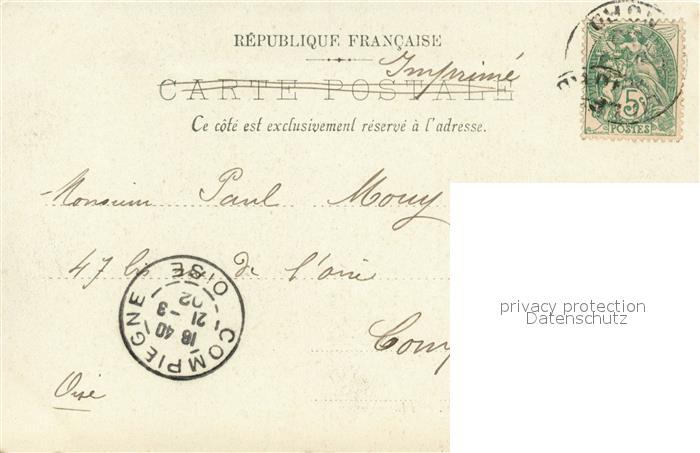 RÉPUBLIQUE FRANÇAISE
Imprimé
CARTE POSTALE
Ce côté est exclusivement réservé à l'adresse.
5c
POSTES
Monsieur Paul Mouy
47 bis rue de l'oise
privacy protection
Datenschutz
COMPIEGNE OISE
18 40
21 -3
02
Comp
Oise